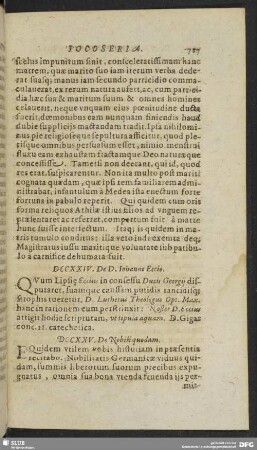 IOCOSERIA. 787
scelus impunitum sinit, consceleratissimam hanc
matrem, quæ marito suo iam iterum verba dede-
rat suasq; manus iam secundo parricidio comma-
culauerat, ex rerum natura aufert, ac, cum parrici-
dia hæc sua & maritum suum & omnes homines
celauerit, neque vnquam eius pœnitudine ducta
fuerit, dæmonibus eam nunquam finiendis haud
dubie suppliciis mactandam tradit. Ipsa nihilomi-
nus pie religioseque sepultura afficitur, quod ple-
risque omnibus persuasum esset, nimio menstrui
fluxu eam exhaustam fractamque Deo naturæ que
concessisse. Tametsi non deerant, qui id, quod
res erat, suspicarentur. Non ita multo post mariti
cognata quædam, quæ ipsi rem familiarem admi-
nistrabat, insantulum à Medea ista enectum forte
fortuna in pabulo reperit. Qui quidem cum oris
forma reliquos
repræsentaret ac referret, compertum fuit à matre
hunc fuisse interfectum. Itaq; is quidem in matris
tumulo conditus: illa veto inde exempta
Magistratus iussu maritique voluntate sub patibu-
lo à carnifice dehumata fuit.
DCCXXIV. De D. Iohanne Eccio.
QVum Lipsię Eccius in consessu Ducis Georgij dis-
putaret, suamque cantilenam putidis rancidisq;
strophis tueretur, D. Lutherus Theologus Opt. Max.
hanc in rationem eum perstrinxit: Noster D. Eccius
attigit hodie scripturam, vt tipula aquam. D. Gigas
conc. 11. catechetica.
DCCXXV. De Nobili quodam.
EQuidem vtilem nobis historiam in præsentia
recitabo. Nobilitatis Germanicæ viduus qui-
dam, summis liberorum suorum precibus expu-
gnatus, omnia sua bona vtenda fruenda iis per-
mit-
SLUB
DFG